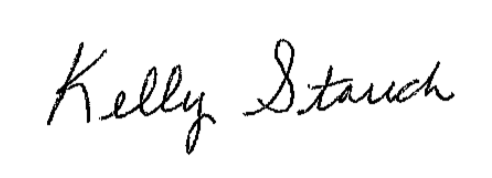 Kelly Stauch